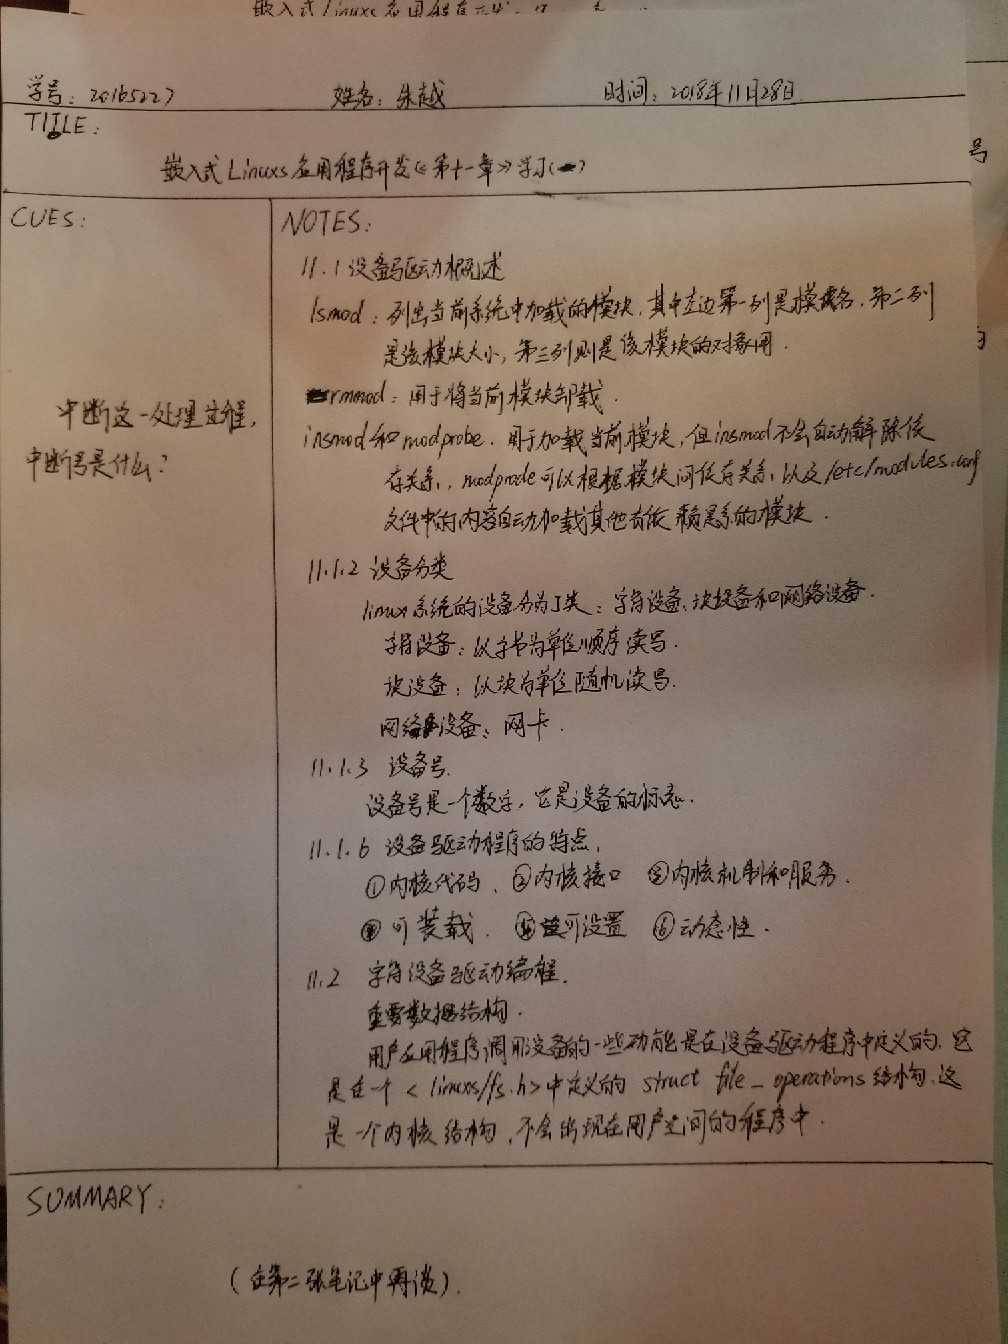 嵌入式Linuxs应用程序开发
学号：20165227 姓名：朱越 时间：2018年11月28日
号
TITLE：
嵌入式Linuxs应用程序开发《第十一章》学习(一)
CUES：
中断这一处理过程，
中断号是什么？
NOTES：
11.1 设备驱动概述
lsmod：列出当前系统中加载的模块，其中左边第一列是模块名，第二列
是该模块大小，第三列则是该模块的对象用．
rmmod：用于将当前模块卸载．
insmod和modprobe．用于加载当前模块，但insmod不会自动解除依
存关系，modprode可以根据模块间依存关系，以及/etc/modules.conf
文件中的内容自动加载其他有依赖关系的模块．
11.1.2 设备分类
linux系统的设备分为J类：字符设备、块设备和网络设备．
字符设备：以字节为单位顺序读写．
块设备：以块为单位随机读写．
网络设备：网卡．
11.1.3 设备号．
设备号是一个数字，它是设备的标志．
11.1.6 设备驱动程序的特点，
①内核代码、②内核接口 ③内核机制和服务．
④可装载． ⑤可设置 ⑥动态性．
11.2 字符设备驱动编程．
重要数据结构．
用户应用程序调用设备的一些功能是在设备驱动程序中定义的，它
是在一个<linuxs/fs.h>中定义的 struct file_operations结构，这
是一个内核结构，不会出现在用户空间的程序中．
SUMMARY：
(在第二张笔记中再谈)．